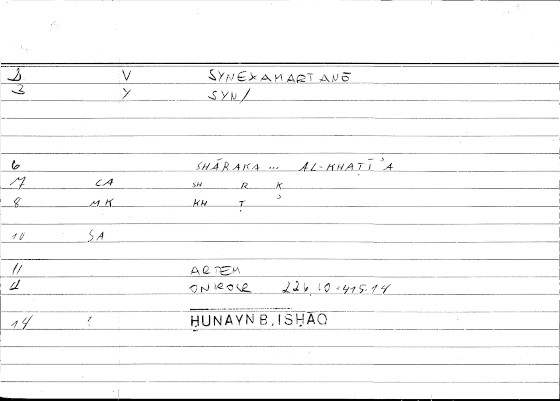 2 V SYNEXAMARTANŌ
3 Y SYN/
6 SHĀRAKA ... AL-KHAṬĪʾA
7 CA SH R K
8 MK KH Ṭ ʾ
10 SA
11 ARTEM
ONIROCR 226,10-415,14
14 ? ḤUNAYN B. ISḤĀQ